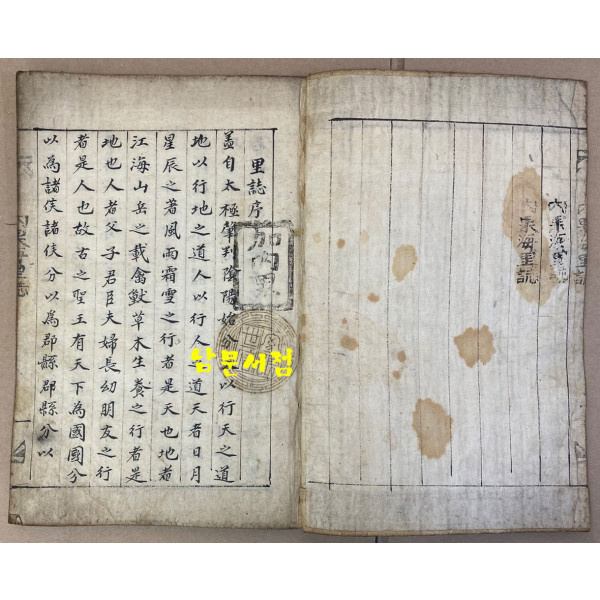 內泉海里誌
里誌序
蓋自太極肇判陰陽始分 以行天之道
地以行地之道人以行人之道天者日月
星辰之著風雨霜雪之行者是天也地者
江海山岳之載禽獸草木生養之行者是
地也人者父子君臣夫婦長幼朋友之行
者是人也故古之聖王有天下為國國分
以為諸侯諸侯分以為郡縣郡縣分以
加內里
남문서점